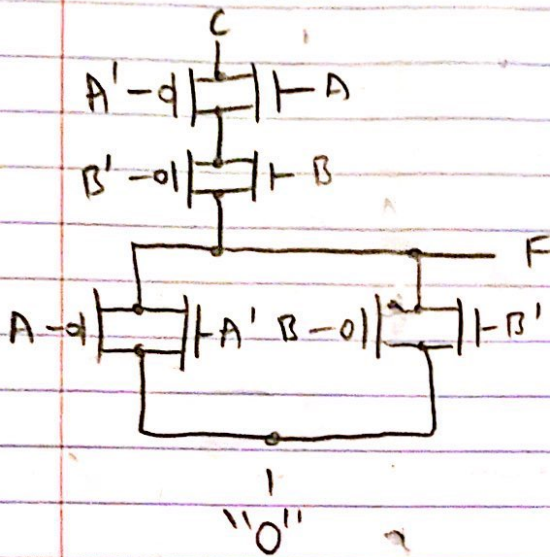 C
A' A
B' B
F
A A' B B'
"0"